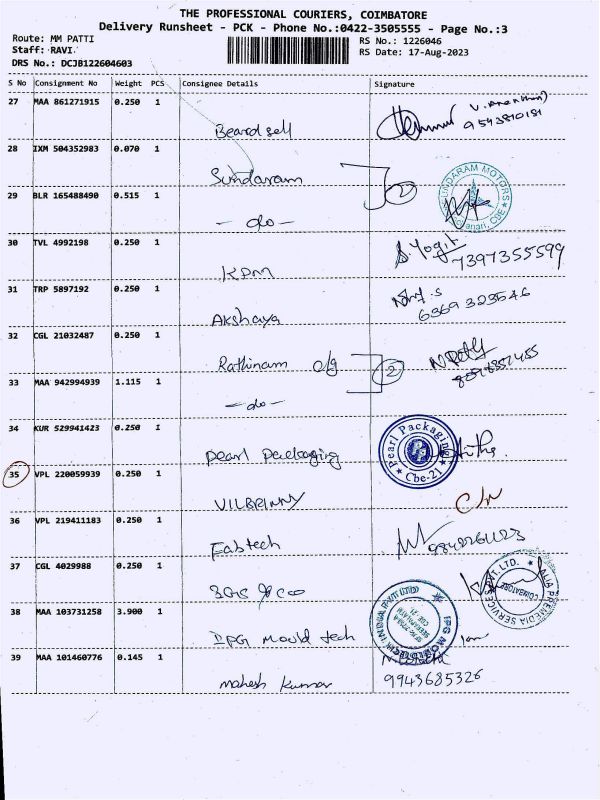 THE PROFESSIONAL COURIERS, COIMBATORE
Delivery Runsheet - PCK - Phone No.:0422-3505555 - Page No.:3
Route: MM PATTI
RS No.: 1226046
Staff: RAVI.
RS Date: 17-Aug-2023
DRS No.: DCJB122604603
S No Consignment No Weight PCS Consignee Details Signature
27 MAA 861271915 0.250 1
Beardsell
9543810181
28 IXM 504352983 0.070 1
Sundaram
2
SUNDARAM MOTORS
29 BLR 165488490 0.515 1
- do -
30 TVL 4992198 0.250 1
KPM
S. Yogit
7397355599
31 TRP 5897192 0.250 1
Akshaya
6369323546
32 CGL 21032487 0.250 1
Rathinam
2
33 MAA 942994939 1.115 1
- do -
34 KUR 529941423 0.250 1
pearl packaging
Pearl Packaging
Cbe-21
35 VPL 220059939 0.250 1
36 VPL 219411183 0.250 1
Fabtech
37 CGL 4029988 0.250 1
COIMBATORE
38 MAA 103731258 3.900 1
IPG mould tech
39 MAA 101460776 0.145 1
mahesh kumar
9943685326